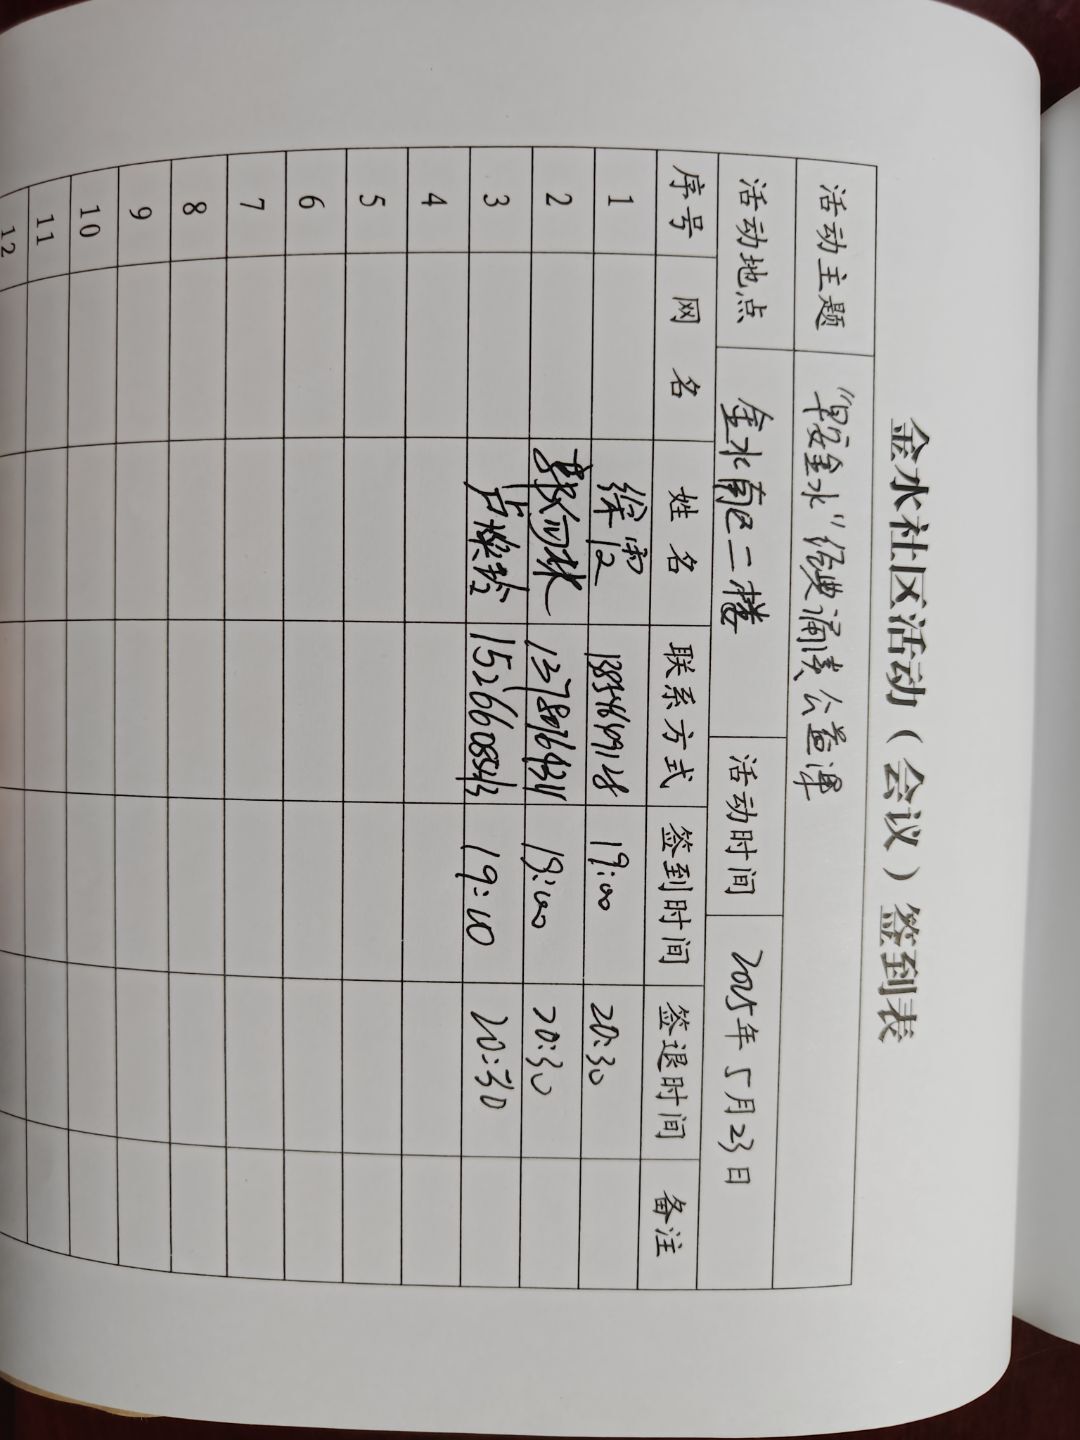 金水社区活动（会议）签到表
活动主题 “早安金水”经典诵读公益课
活动地点 金水南区二楼 活动时间 2025年5月23日
序号 网名 姓名 联系方式 签到时间 签退时间 备注
1 徐 19:00 20:30
2 郭 19:00 20:30
3 卢 15266085413 19:10 20:30
4
5
6
7
8
9
10
11
12